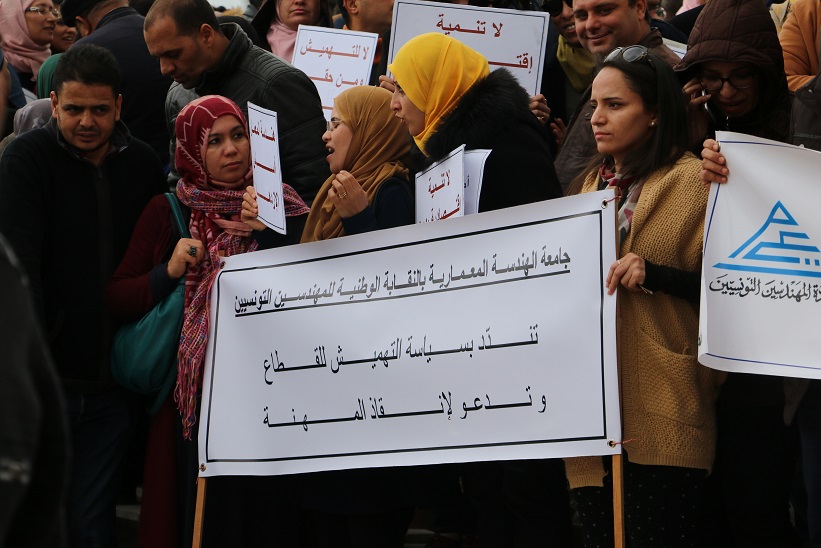 لا تنمية
لا للتهميش
لا تنمية
جامعة الهندسة المعمارية بالنقابة الوطنية للمهندسين التونسيين
تندّد بسياسة التهميش للقطاع
و تدعو لإنقاذ المهنة
المهندسين التونسيين